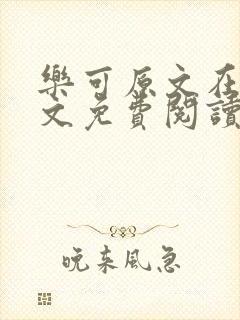 樂可原文在
文免費閱讀
晚来風急